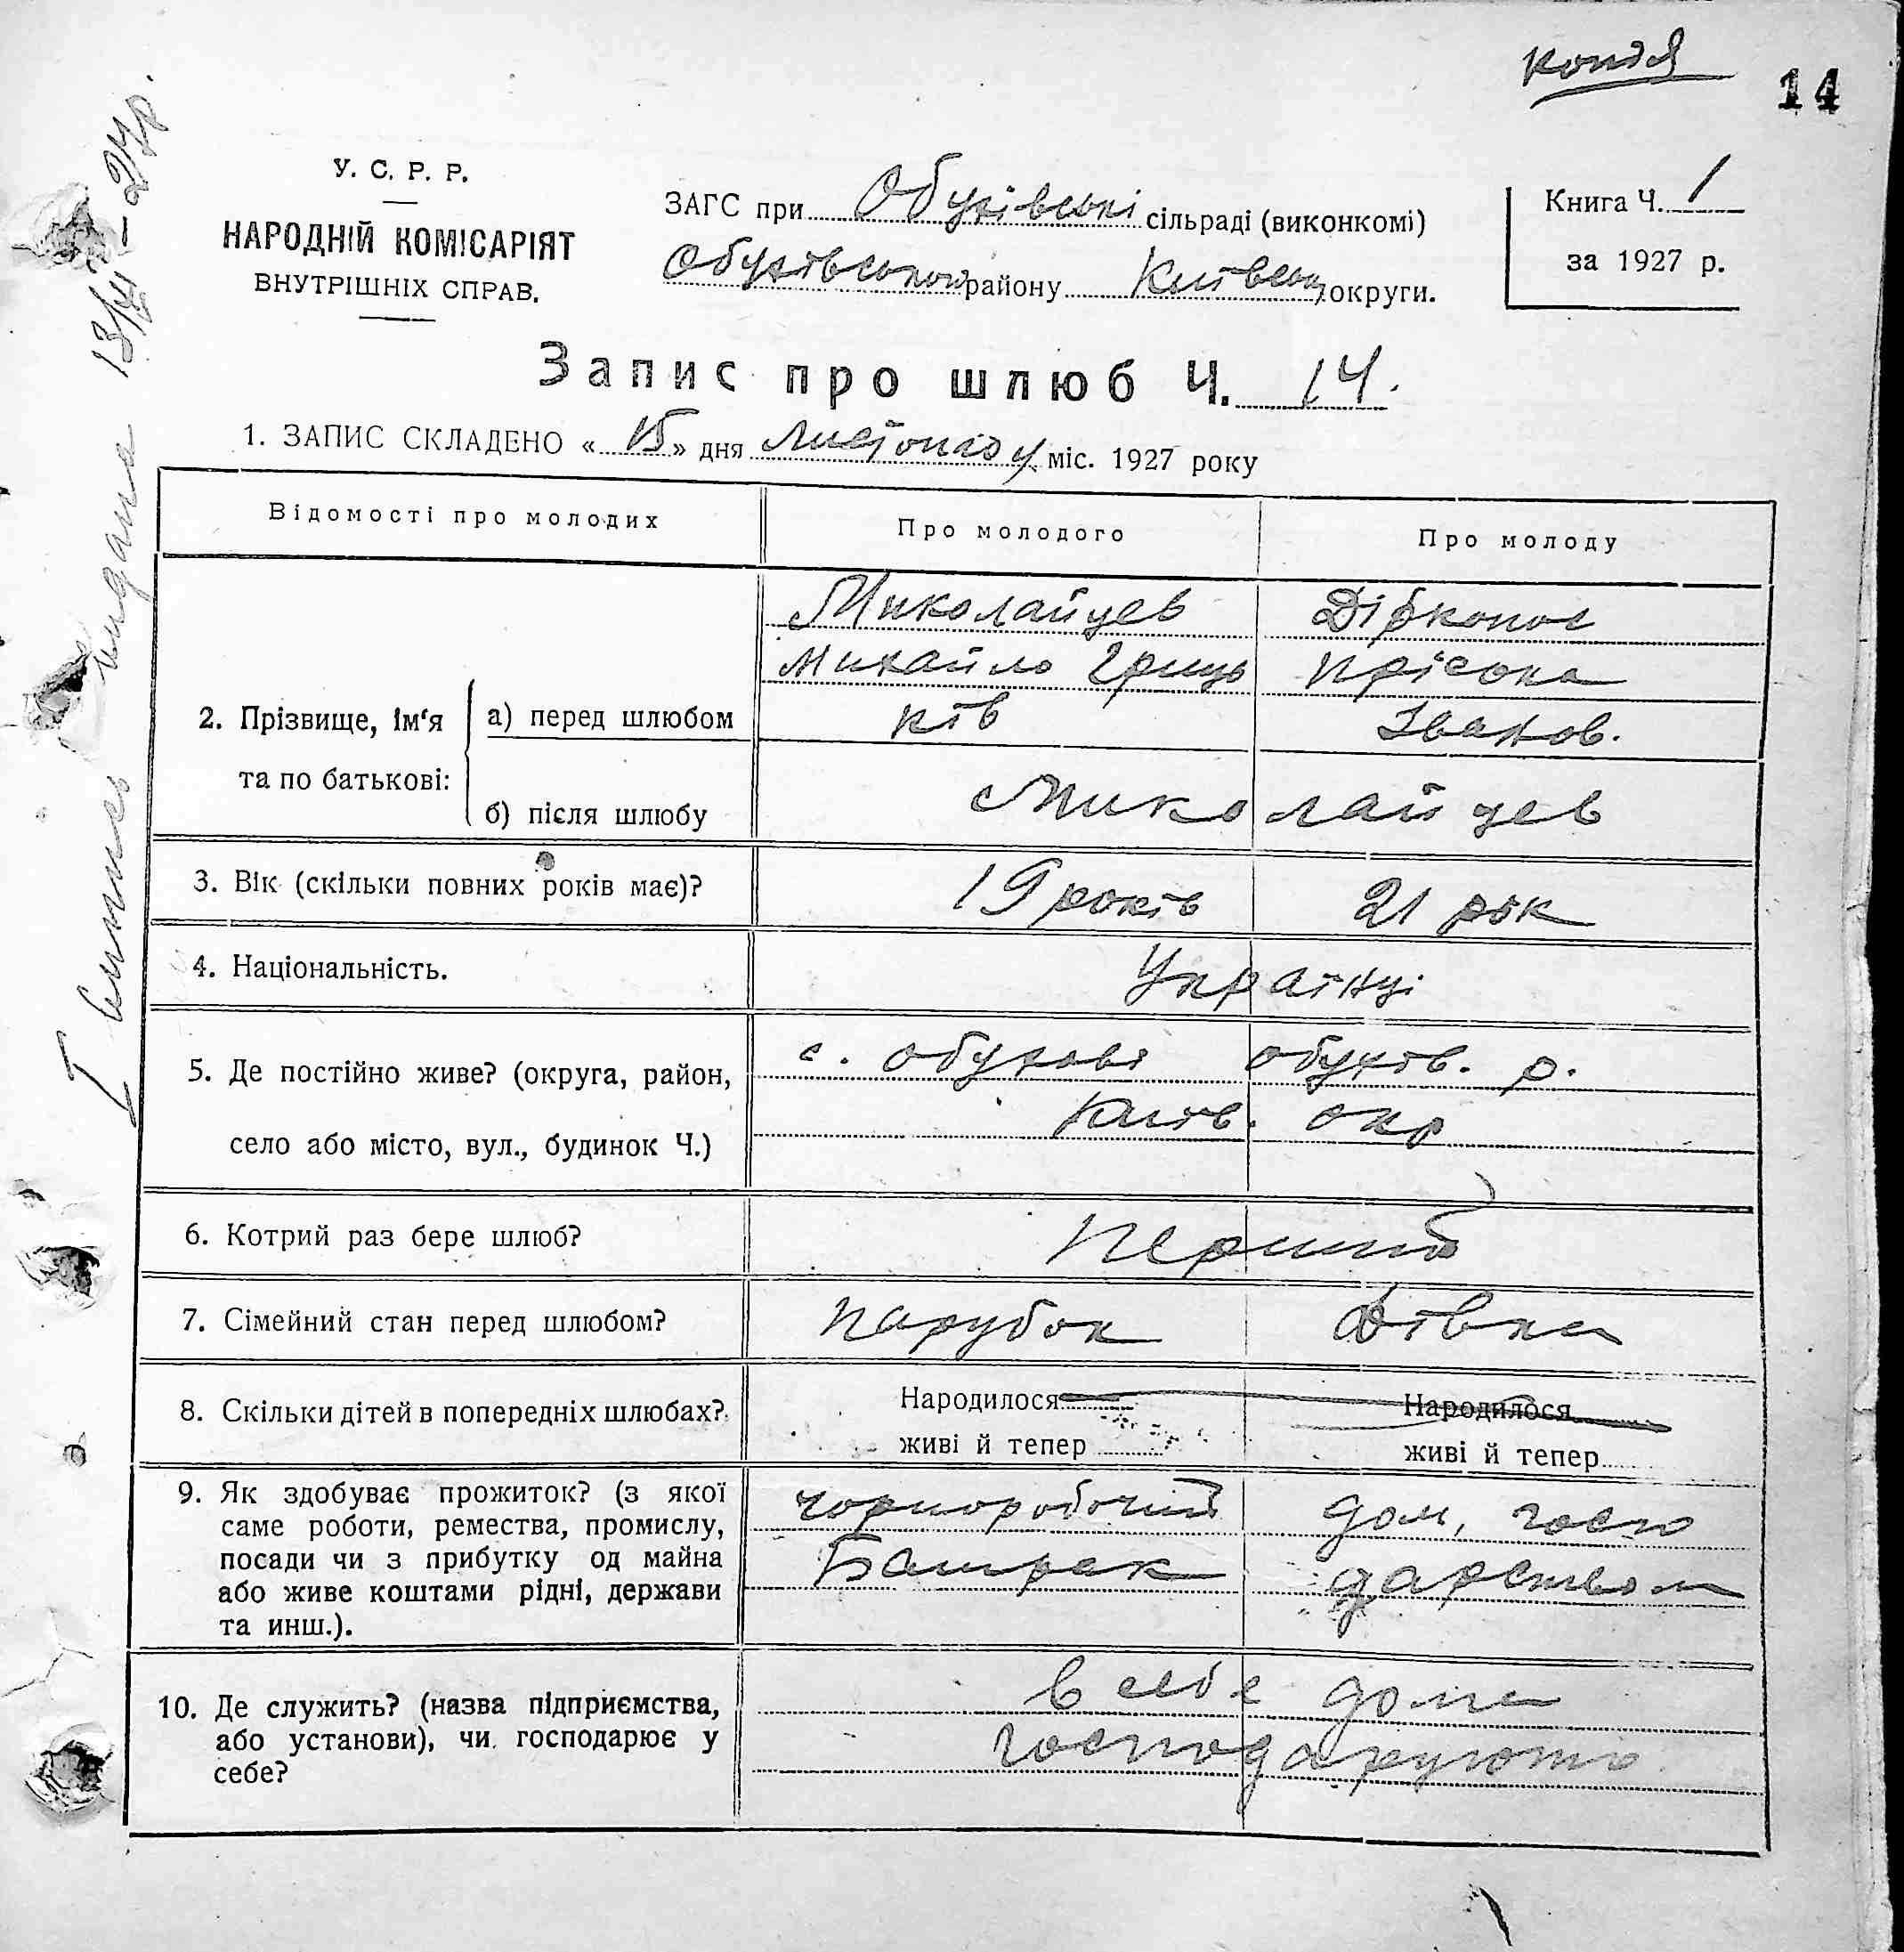 копія
14
У. С. Р. Р.
НАРОДНІЙ КОМІСАРІЯТ
ВНУТРІШНІХ СПРАВ.
ЗАГС при Обухівські сільраді (виконкомі)
Обухівського району Київської округи.
Книга Ч. 1
за 1927 р.
Запис про шлюб Ч. 14.
1. ЗАПИС СКЛАДЕНО « 15 » дня Листопаду міс. 1927 року
Відомості про молодих
Про молодого
Про молоду
2. Прізвище, ім'я та по батькові:
а) перед шлюбом
Миколайцев
Михайло Грицьків
Прісока
Іванов.
б) після шлюбу
Миколайцев
3. Вік (скільки повних років має)?
19 років
21 рок
4. Національність.
Українці
5. Де постійно живе? (округа, район,
село або місто, вул., будинок Ч.)
с. Обухові Обухів. р.
Київ. окр
6. Котрий раз бере шлюб?
Перший
7. Сімейний стан перед шлюбом?
парубок
Дівка
8. Скільки дітей в попередніх шлюбах?
Народилося
живі й тепер
Народилося
живі й тепер
9. Як здобуває прожиток? (з якої
саме роботи, ремества, промислу,
посади чи з прибутку од майна
або живе коштами рідні, держави
та инш.).
чорноробочий
Батрак
дом. госпо
дарством
10. Де служить? (назва підприємства,
або установи), чи господарює у
себе?
в себе дома
господарують